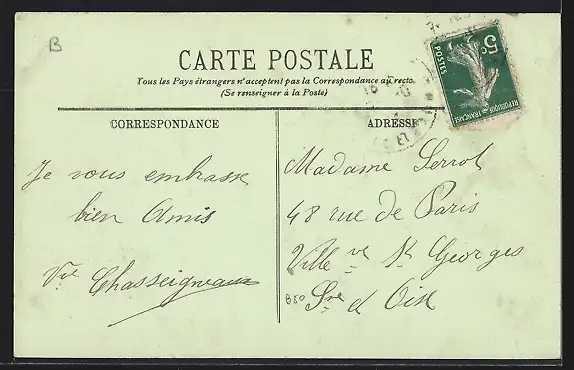 B
CARTE POSTALE
Tous les Pays étrangers n'acceptent pas la Correspondance au recto.
(Se renseigner à la Poste)
CORRESPONDANCE
Je vous embrasse
bien Amis
Vve Chasseigneaux
ADRESSE
Madame Serrot
48 rue de Paris
Villeve St Georges
Sne d Oise
B50
5c
POSTES
REPUBLIQUE FRANÇAISE